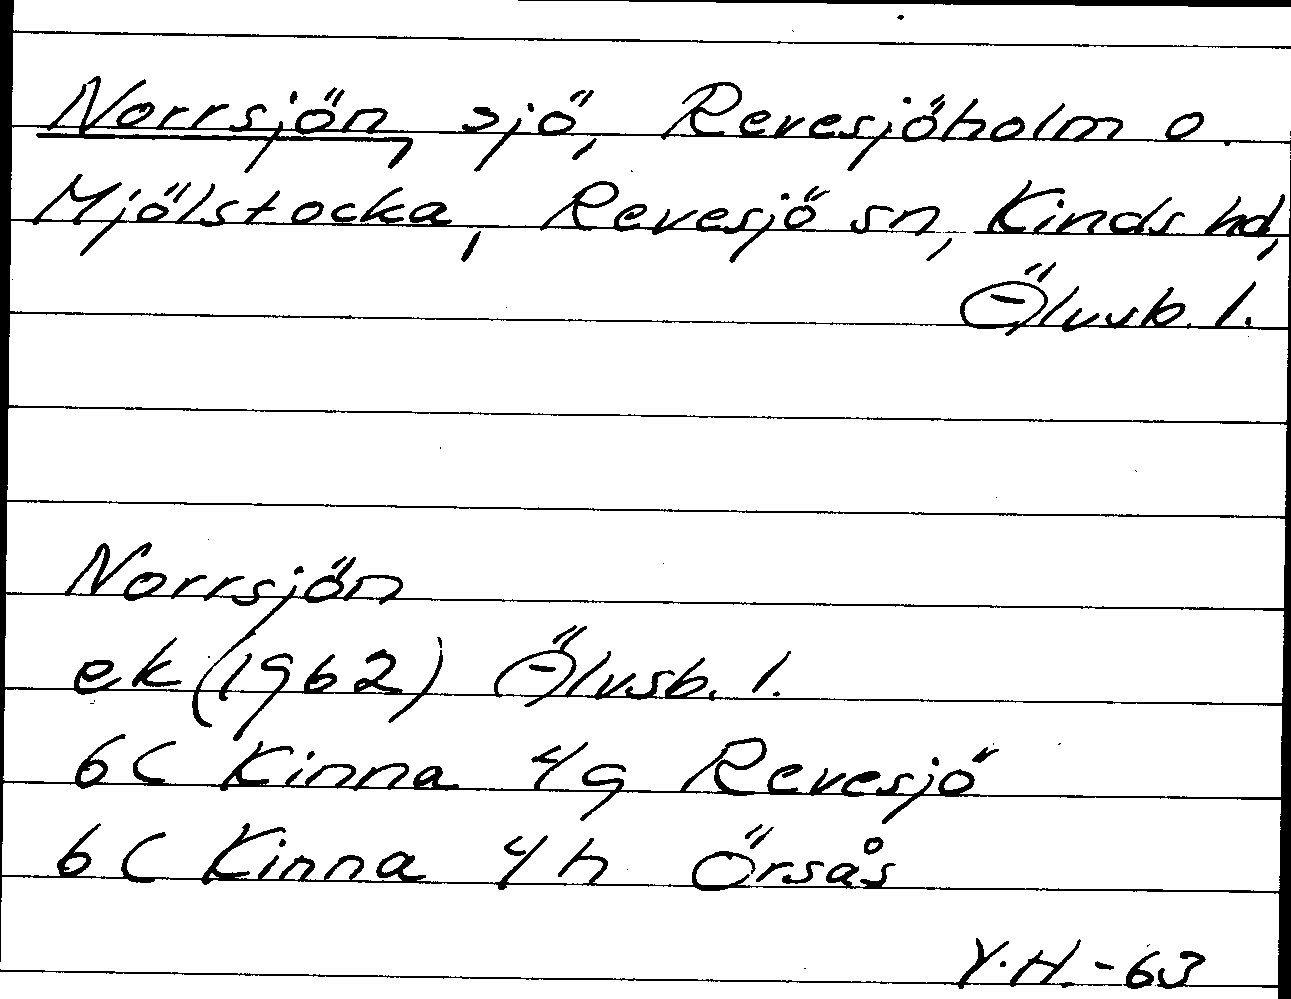 Norrsjön, sjö, Revesjöholm o.
Mjölstocka, Revesjö sn, Kinds hd,
Älvsb. l.
Norrsjön
ek (1962) Älvsb. l.
6C Kinna 4g Revesjö
6C Kinna 4h Örsås
Y.H.-63